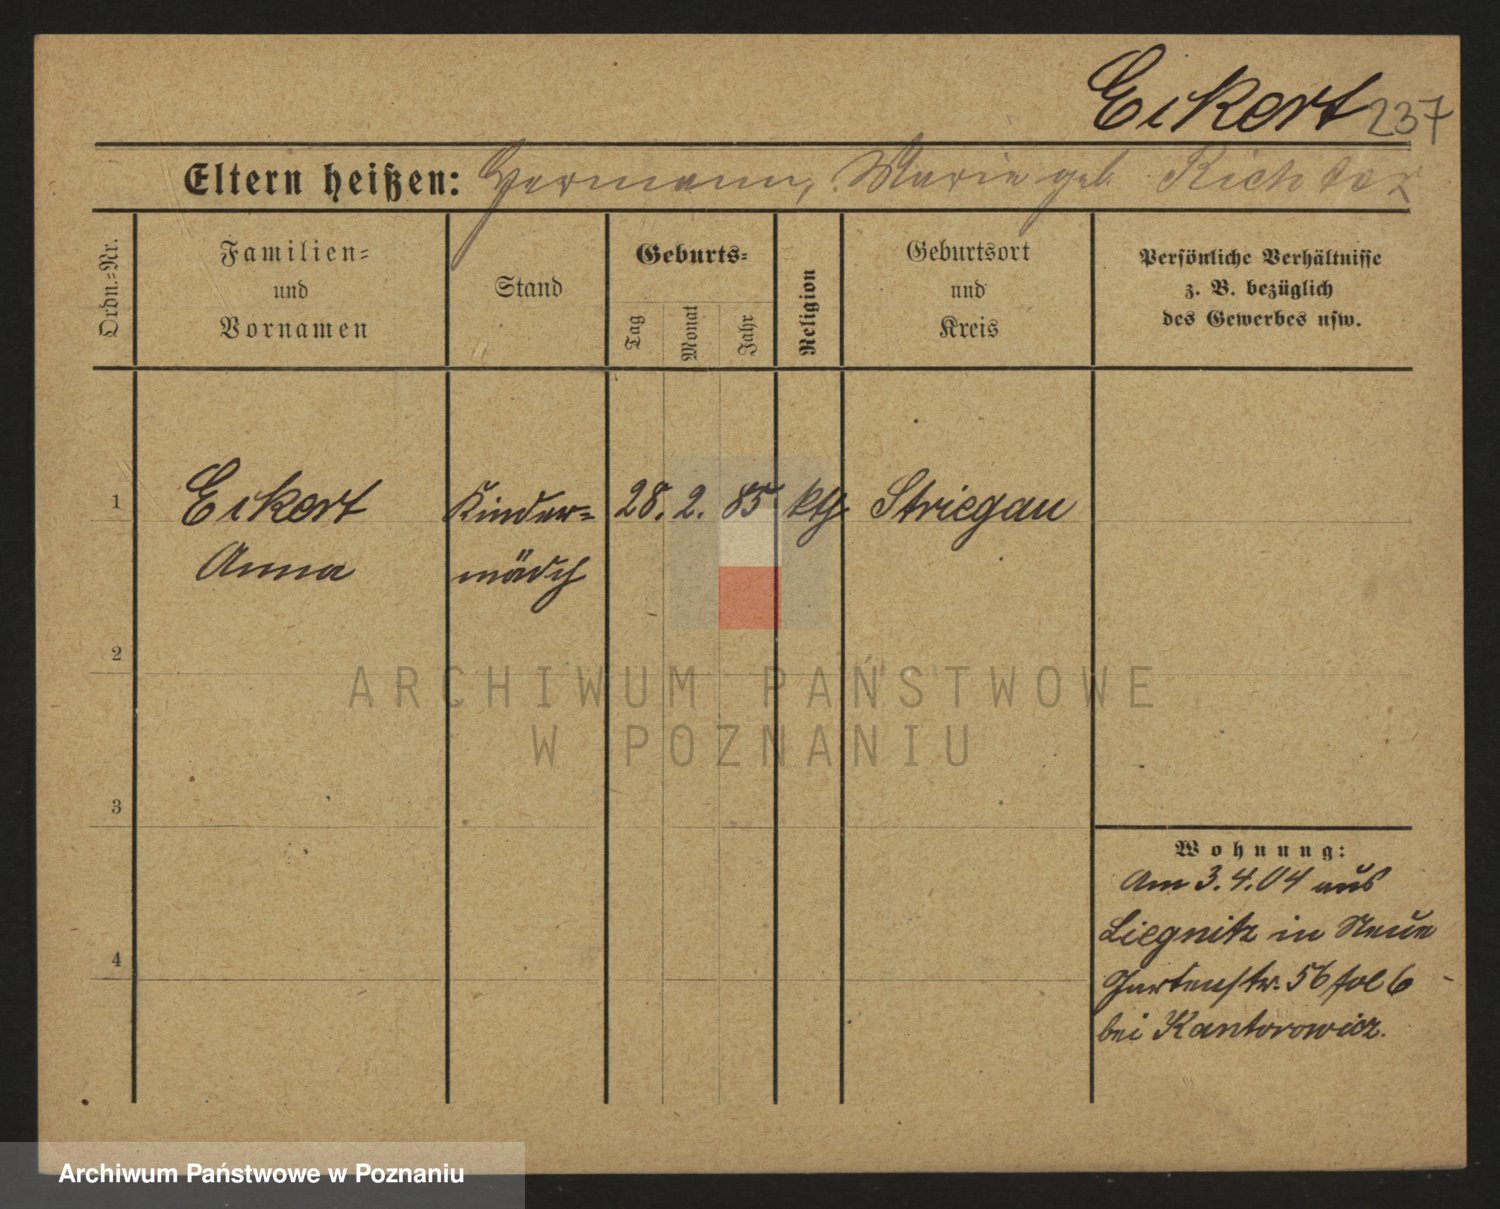 Eckert 237
Eltern heißen: Hermann, Marie geb. Richter
Ordn.=Nr.
Familien=
und
Vornamen
Stand
Geburts=
Tag
Monat
Jahr
Religion
Geburtsort
und
Kreis
Persönliche Verhältnisse
z. B. bezüglich
des Gewerbes usw.
1 Eckert Kinder= 28. 2. 85 kth Striegau
Anna mädch
2
3
4
Wohnung:
Am 3.4.04 aus
Liegnitz in Neue
Gartenstr. 56 fol 6
bei Kantorowicz.
ARCHIWUM PAŃSTWOWE
W POZNANIU
Archiwum Państwowe w Poznaniu